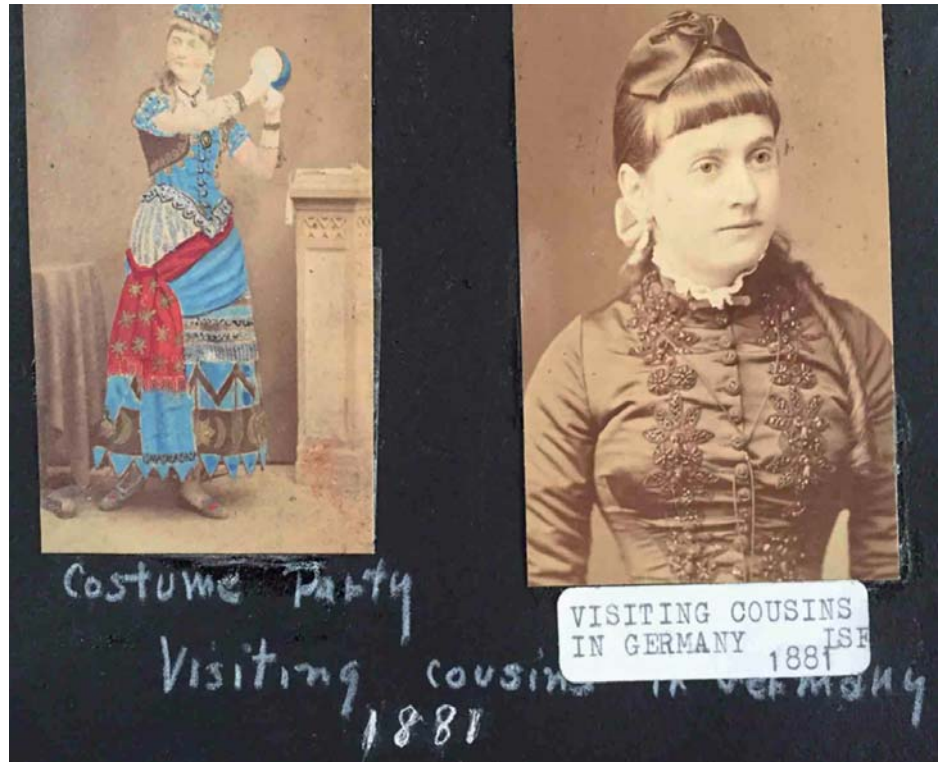 Costume Party
VISITING COUSINS
IN GERMANY ISF
1881
Visiting cousins in Germany
1881